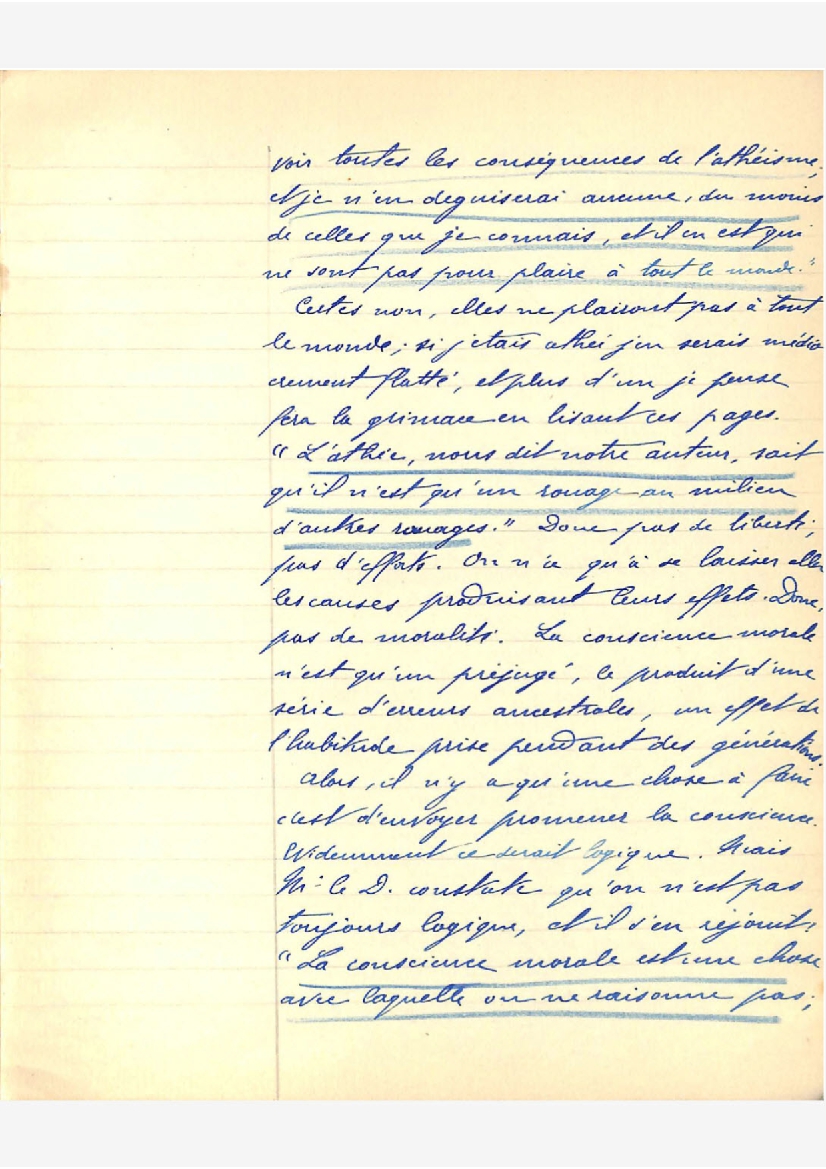 voir toutes les conséquences de l'athéisme,
et je n'en deguiserai aucune, du moins
de celles que je connais, et il en est qui
ne sont pas pour plaire à tout le monde."
Certes non, elles ne plairont pas à tout
le monde; si j'étais athée j'en serais médio
crement flatté, et plus d'un je pense
fera la grimace en lisant ces pages.
"L'athée, nous dit notre auteur, sait
qu'il n'est qu'un rouage au milieu
d'autres rouages." Donc pas de liberté,
pas d'efforts. On n'a qu'à se laisser aller
les causes produisant leurs effets. Donc,
pas de moralité. La conscience morale
n'est qu'un préjugé, le produit d'une
série d'erreurs ancestrales, un effet de
l'habitude prise pendant des générations.
Alors, il n'y a qu'une chose à faire
c'est d'envoyer promener la conscience.
Evidemment ce serait logique. Mais
Mr le D. constate qu'on n'est pas
toujours logique, et il s'en réjouit:
"La conscience morale est une chose
avec laquelle on ne raisonne pas;